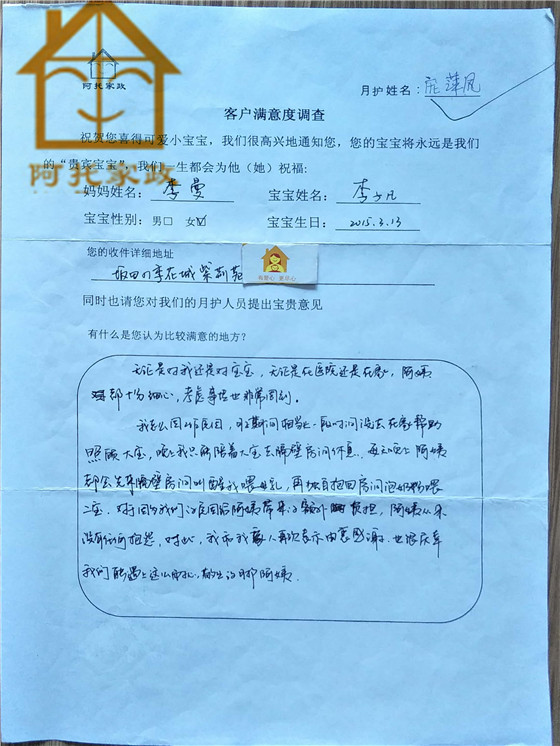 阿托家政
月护姓名：庞萍凤
客户满意度调查
祝贺您喜得可爱小宝宝，我们很高兴地通知您，您的宝宝将永远是我们
的“贵宾宝宝”，我们一生都会为他（她）祝福：
阿托家政
妈妈姓名：李曼 宝宝姓名：李子凡
宝宝性别：男□ 女☑ 宝宝生日：2015.3.13
您的收件详细地址
坂田四季花城紫荆苑
同时也请您对我们的月护人员提出宝贵意见
有什么是您认为比较满意的地方？
无论是对我还是对宝宝，无论是在医院还是在家，阿姨
都十分细心，考虑事情也非常周到。
我老公因工作原因，在期间相当长一段时间没在家帮助
照顾大宝，晚上我只能陪着大宝在隔壁房间休息，每天晚上阿姨
都会先来隔壁房间叫醒我喂母乳，再独自抱回房间泡奶粉喂
二宝，对于因为我们的原因给阿姨带来的额外负担，阿姨从来
没有任何抱怨，对此，我和我家人再次表示由衷感谢，也很庆幸
我们能遇上这么用心，敬业的月护阿姨.